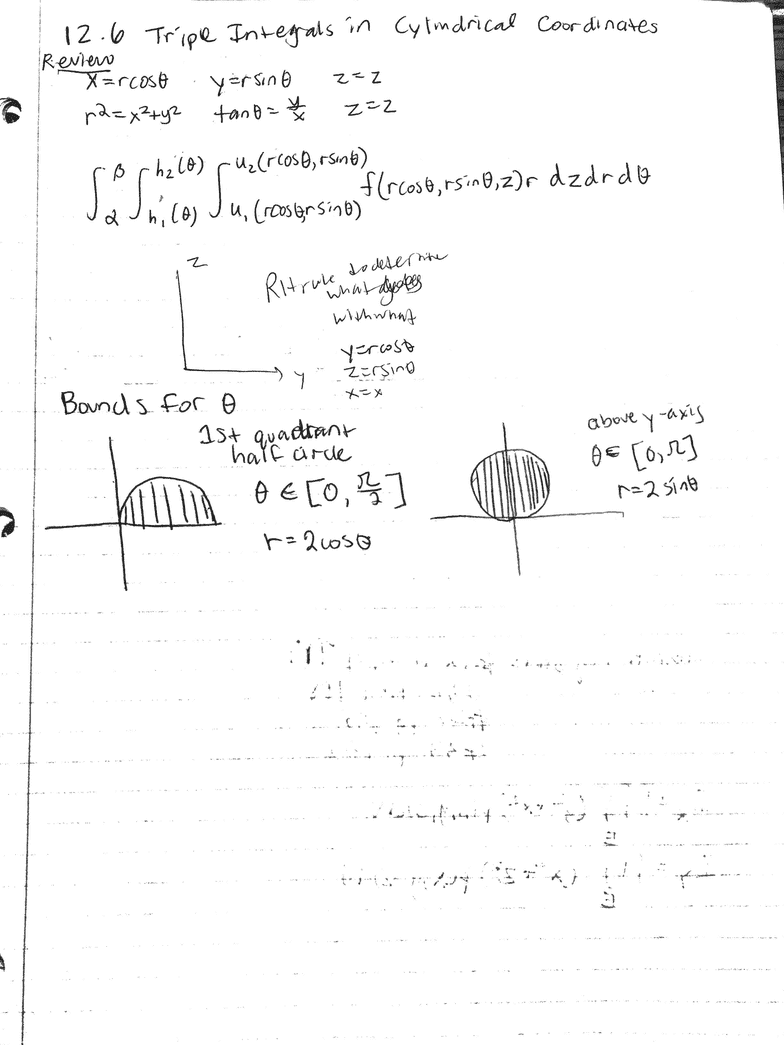 12.6 Triple Integrals in Cylindrical Coordinates
Review
x=rcosθ y=rsinθ z=z
r²=x²+y² tanθ=y/x z=z
∫_α^β ∫_{h₁(θ)}^{h₂(θ)} ∫_{u₁(rcosθ,rsinθ)}^{u₂(rcosθ,rsinθ)} f(rcosθ,rsinθ,z)r dzdrdθ
z
RH rule to determine
what goes
with what
y=rcosθ
z=rsinθ
x=x
y
Bounds for θ
1st quadrant
half circle
θ ∈ [0, π/2]
r=2cosθ
above y-axis
θ∈ [0,π]
r=2sinθ